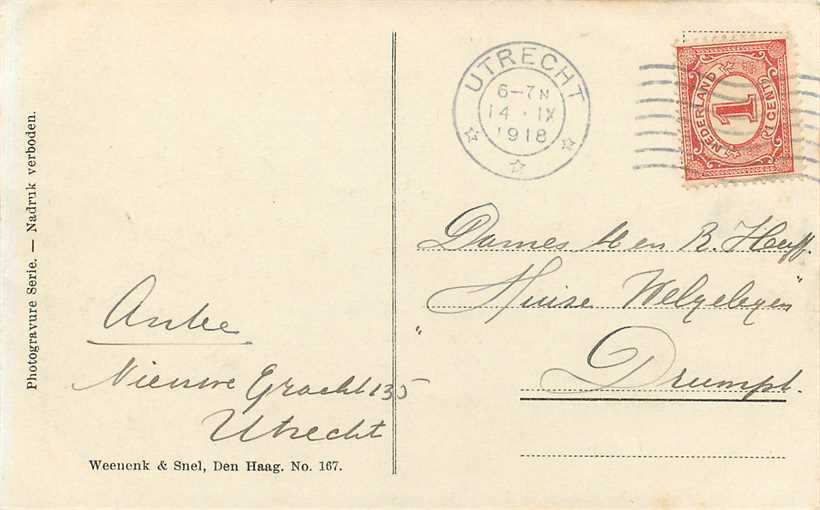 Photogravure Serie. — Nadruk verboden.
Anke
Nieuwe Gracht 135
Utrecht
Weenenk & Snel, Den Haag. No. 167.
UTRECHT
6-7N
14·IX
1918
NEDERLAND
1
1 CENT
Dames M en R. Heuff.
"Huise Welgelegen"
Drumpt.